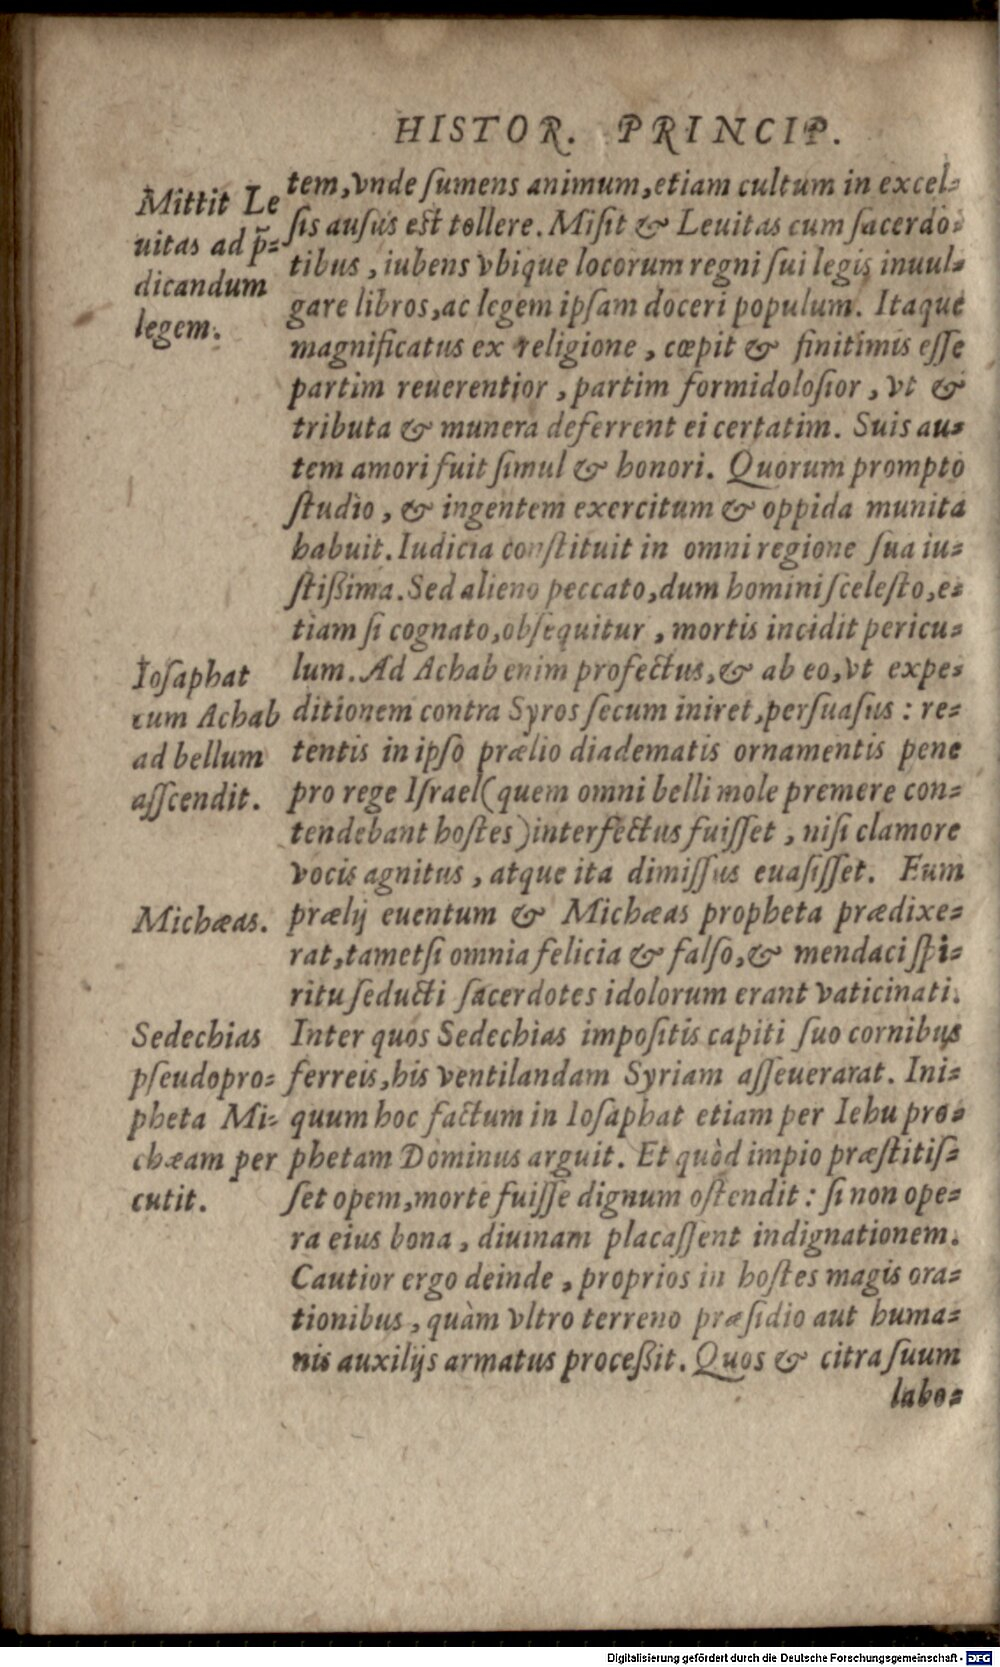 HISTOR. PRINCIP.
Mittit Le
uitas ad p̃=
dicandum
legem.
tem, vnde ſumens animum, etiam cultum in excel=
ſis auſus est tollere. Miſit & Leuitas cum ſacerdo=
tibus, iubens vbique locorum regni ſui legis inuul=
gare libros, ac legem ipſam doceri populum. Itaque
magnificatus ex religione, cœpit & finitimis eſſe
partim reuerentior, partim formidoloſior, vt &
tributa & munera deferrent ei certatim. Suis au=
tem amori fuit ſimul & honori. Quorum prompto
ſtudio, & ingentem exercitum & oppida munita
habuit. Iudicia conſtituit in omni regione ſua iu=
ſtißima. Sed alieno peccato, dum homini ſceleſto, e=
tiam ſi cognato, obſequitur, mortis incidit pericu=
Ioſaphat
cum Achab
ad bellum
aſſcendit.
lum. Ad Achab enim profectus, & ab eo, vt expe=
ditionem contra Syros ſecum iniret, perſuaſus: re=
tentis in ipſo prælio diadematis ornamentis pene
pro rege Iſrael (quem omni belli mole premere con=
tendebant hoſtes) interfectus fuiſſet, niſi clamore
vocis agnitus, atque ita dimiſſus euaſiſſet. Eum
Michæas.
prælij euentum & Michæas propheta prædixe=
rat, tametſi omnia felicia & falſo, & mendaci ſpi=
ritu ſeducti ſacerdotes idolorum erant vaticinati.
Sedechias
pſeudopro=
pheta Mi=
chæam per
cutit.
Inter quos Sedechias impoſitis capiti ſuo cornibus
ferreis, his ventilandam Syriam aſſeuerarat. Ini=
quum hoc factum in Ioſaphat etiam per Iehu pro=
phetam Dominus arguit. Et quòd impio præſtitiſ=
ſet opem, morte fuiſſe dignum oſtendit: ſi non ope=
ra eius bona, diuinam placaſſent indignationem.
Cautior ergo deinde, proprios in hoſtes magis ora=
tionibus, quàm vltro terreno præſidio aut huma=
nis auxilijs armatus proceßit. Quos & citra ſuum
labo=
Digitalisierung gefördert durch die Deutsche Forschungsgemeinschaft - DFG